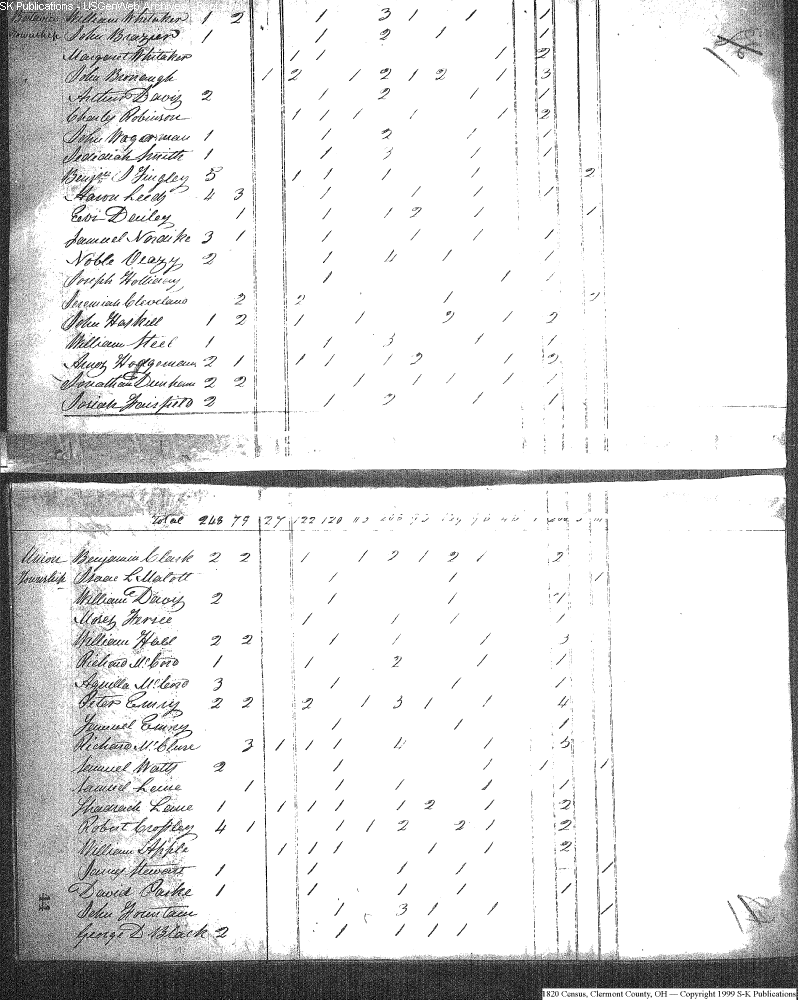 SK Publications - USGenWeb Archives -
William Whitaker 1 2 1 3 1 1 1
Township John Brazier 1 1 2 1 1
Margaret Whitaker 1 1 1 2
John Bronaugh 1 2 1 2 1 2 1 3
Arthur Davis 2 1 2 1 1
Charles Robinson 1 1 1 1 1 2
John Wagerman 1 1 2 1 1
Jedidiah Smith 1 1 3 1 1
5 1 1 1 1 2
Aaron Leeds 4 3 1 1 1 1
Levi Dailey 1 1 1 2 1 1
Samuel 3 1 1 1 1 1
Noble Veazy 2 1 4 1 1
Joseph 1 1 1
Jeremiah Cleveland 2 2 1 2
John Haskell 1 2 1 1 2 1 2
William Steel 1 1 3 1 1
Amos 2 1 1 1 1 1 2 1 2
Jonathan Dunham 2 2 1 1 1 1 1
Josiah 2 1 2 1 1
Total 248 79 27 122 120
Union Benjamin Clark 2 2 1 1 2 1 2 1 2
Township Isaac L Malott 1 1 1
William Davis 2 1 1 1
Moses 1 1 1 1 1
William Hall 2 2 1 1 1 3
Richard McCord 1 1 2 1 1
Aquilla McCord 3 1 1 1
Peter Emry 2 2 2 1 3 1 1 4
Emry 1 1 1
Richard McClure 3 1 1 1 4 1 3
Samuel Watts 2 1 1 1 1
Samuel Lane 1 1 1 1 1
Shadrach Lane 1 1 1 1 1 2 1 2
Robert Cropley 4 1 1 1 2 2 1 2
William Apple 1 1 1 1 1 2
James Stewart 1 1 1 1 1
David 1 1 1 1 1
John Fountain 1 3 1 1 1
George D Black 2 1 1 1 1
44
1820 Census, Clermont County, OH — Copyright 1999 S-K Publications